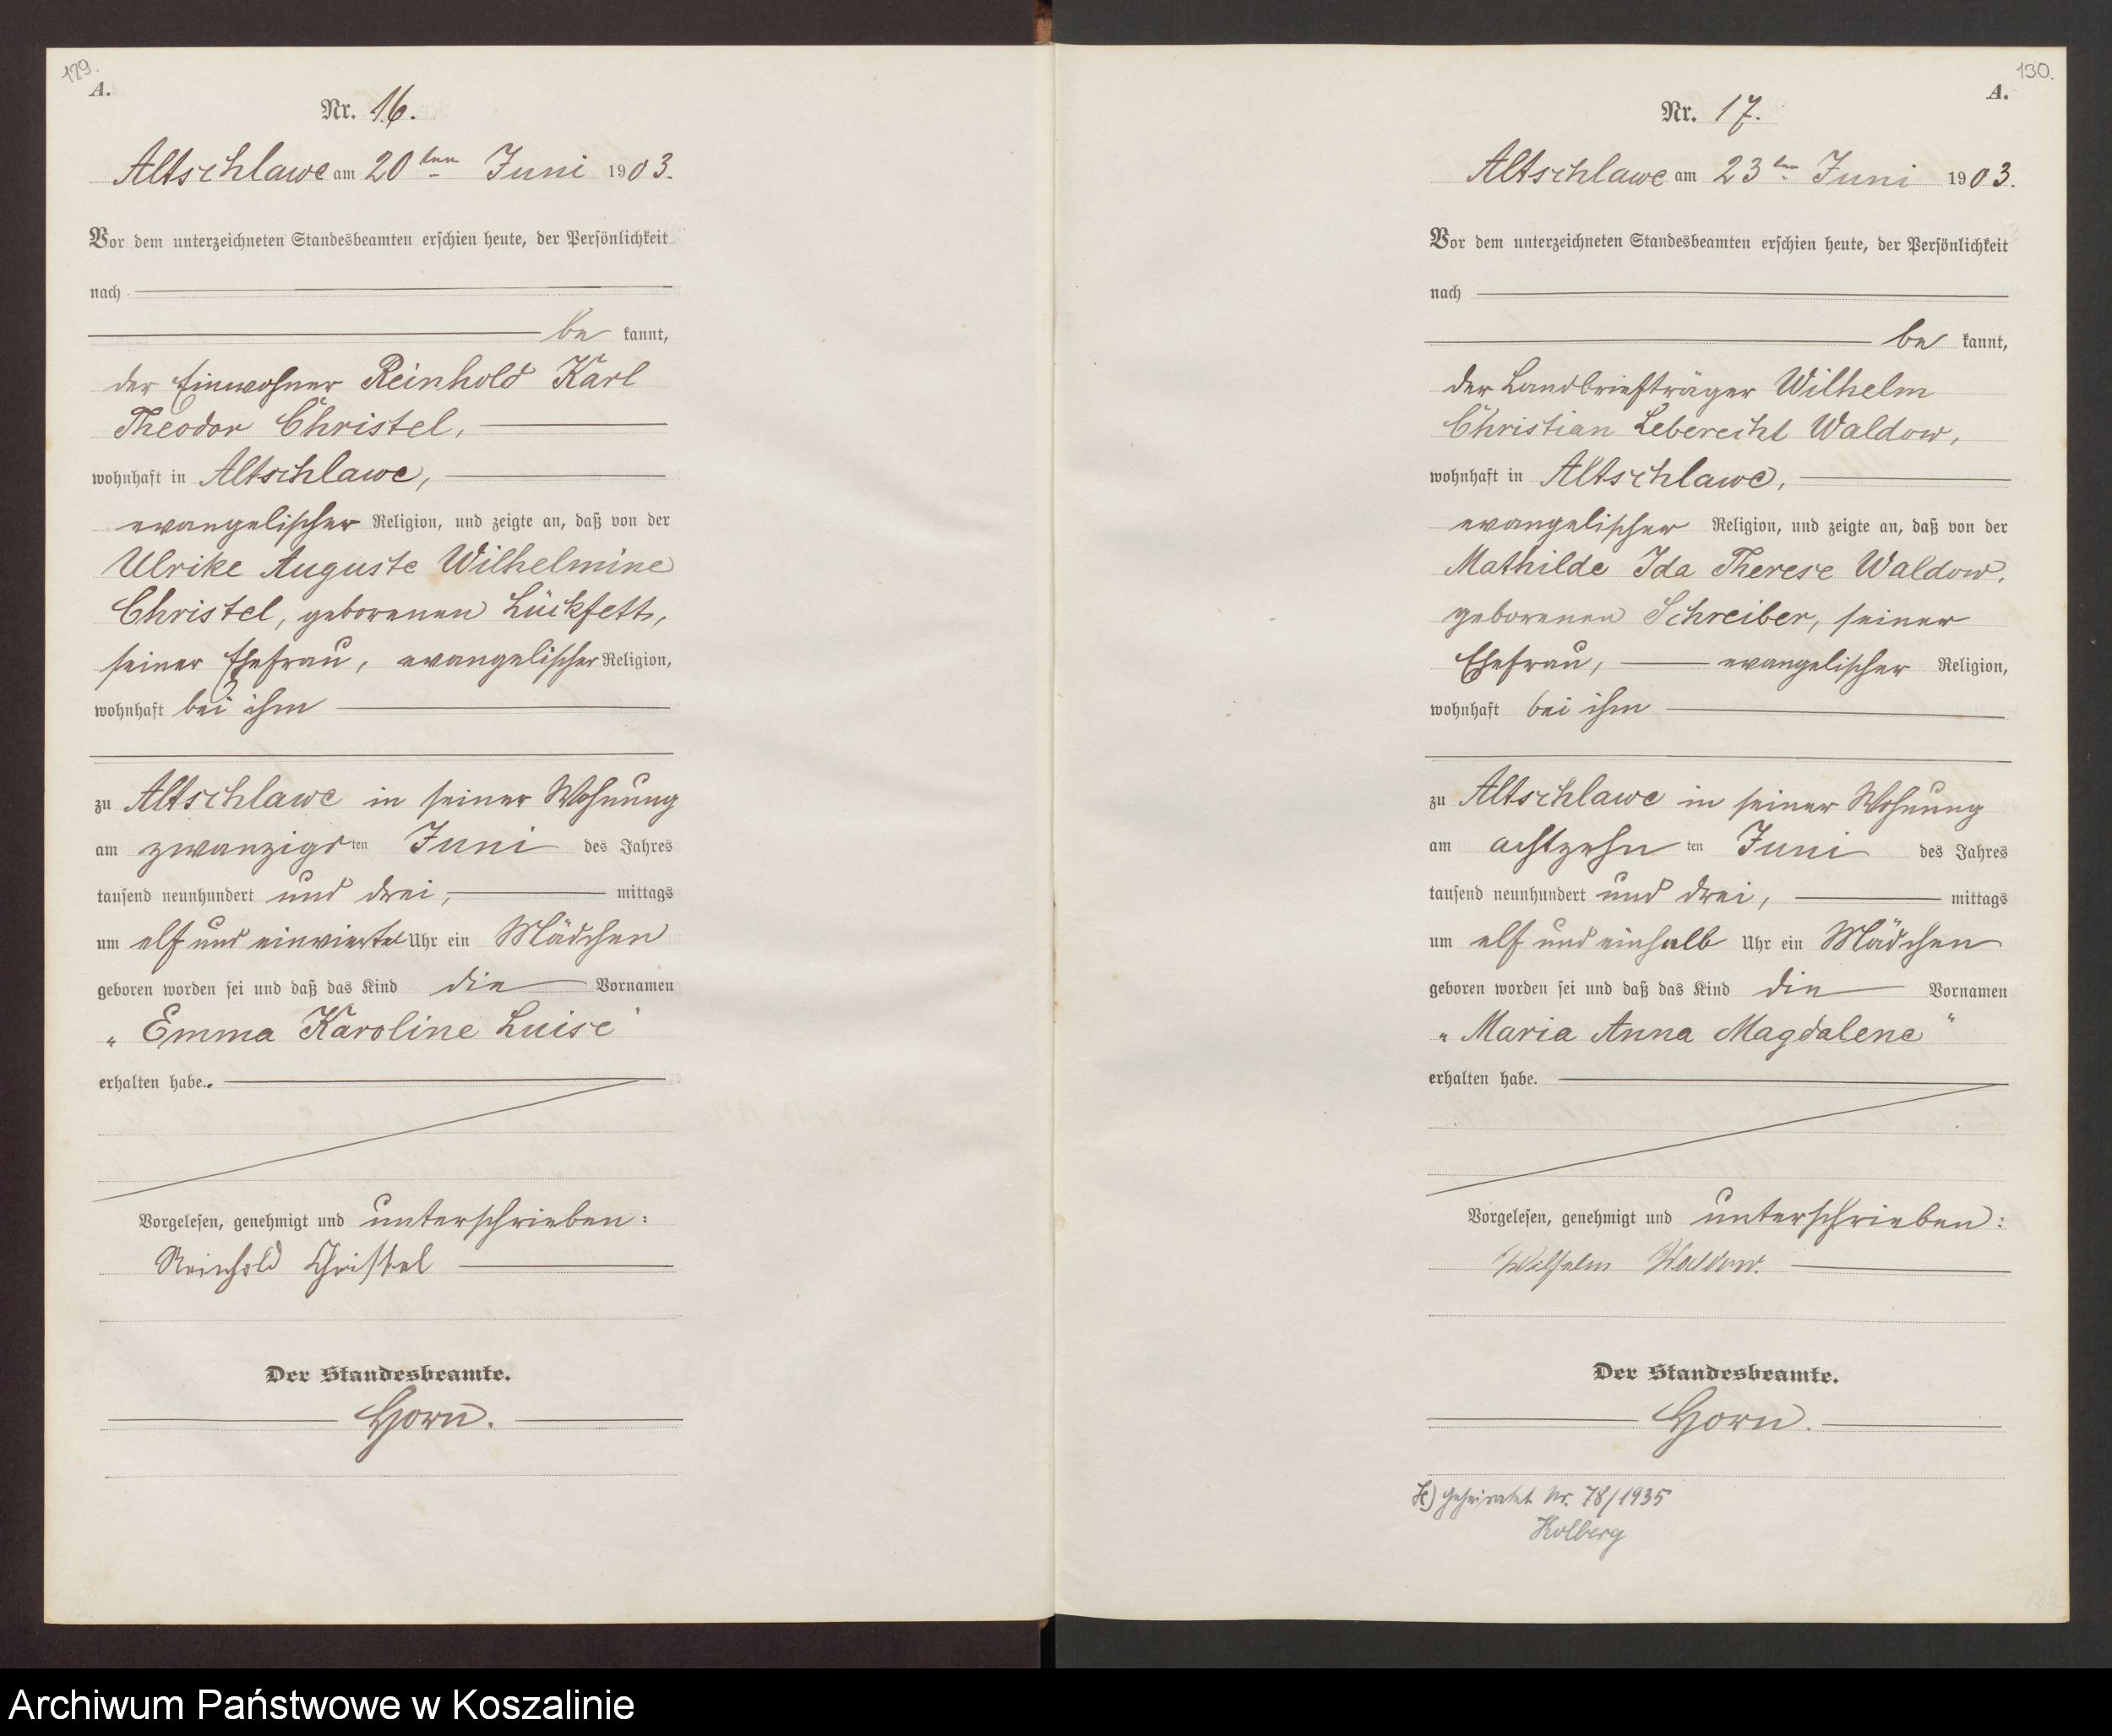 129.
A.
Nr. 16.
Altschlawe am 20ten Juni 1903.
Vor dem unterzeichneten Standesbeamten erschien heute, der Persönlichkeit
nach
be kannt,
der Einwohner Reinhold Karl
Theodor Christel,
wohnhaft in Altschlawe,
evangelischer Religion, und zeigte an, daß von der
Ulrike Auguste Wilhelmine
Christel, geborenen Lückfett,
seiner Ehefrau, evangelischer Religion,
wohnhaft bei ihm
zu Altschlawe in seiner Wohnung
am zwanzigsten Juni des Jahres
tausend neunhundert und drei, mittags
um elf und einviertel Uhr ein Mädchen
geboren worden sei und daß das Kind die Vornamen
„Emma Karoline Luise"
erhalten habe.
Vorgelesen, genehmigt und unterschrieben:
Reinhold Christel
Der Standesbeamte.
Horn.
130.
A.
Nr. 17.
Altschlawe am 23ten Juni 1903.
Vor dem unterzeichneten Standesbeamten erschien heute, der Persönlichkeit
nach
be kannt,
der Landbriefträger Wilhelm
Christian Leberecht Waldow,
wohnhaft in Altschlawe,
evangelischer Religion, und zeigte an, daß von der
Mathilde Ida Therese Waldow,
geborenen Schreiber, seiner
Ehefrau, evangelischer Religion,
wohnhaft bei ihm
zu Altschlawe in seiner Wohnung
am achtzehn ten Juni des Jahres
tausend neunhundert und drei, mittags
um elf und einhalb Uhr ein Mädchen
geboren worden sei und daß das Kind die Vornamen
„Maria Anna Magdalene"
erhalten habe.
Vorgelesen, genehmigt und unterschrieben:
Wilhelm Waldow.
Der Standesbeamte.
Horn.
geheiratet Nr. 78/1935
Kolberg
Archiwum Państwowe w Koszalinie